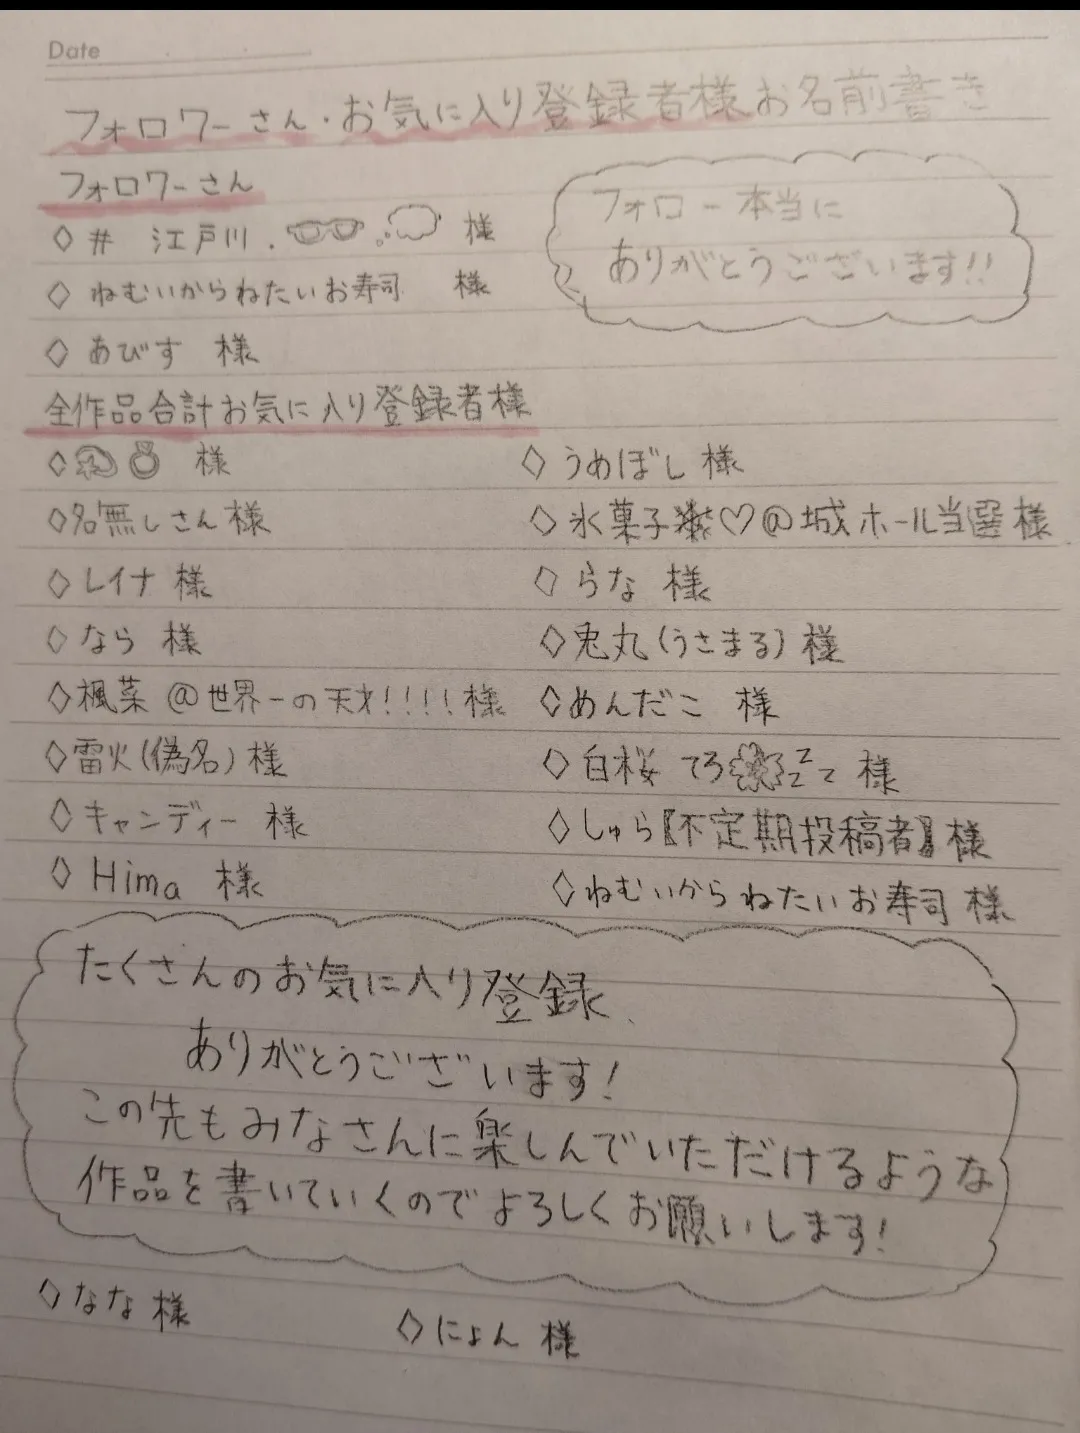 Date
フォロワーさん・お気に入り登録者様お名前書き
フォロワーさん
フォロー本当に
ありがとうございます!!
◇ # 江戸川. 様
◇ ねむいからねたいお寿司 様
◇ あびす 様
全作品合計お気に入り登録者様
◇ 様
◇名無しさん様
◇レイナ 様
◇なら 様
◇楓菜 @世界一の天才!!!!様
◇雷火(偽名) 様
◇キャンディー 様
◇ Hima 様
◇ うめぼし 様
◇ 氷菓子❄♡@城ホール当選 様
◇ らな 様
◇兎丸(うさまる) 様
◇めんだこ 様
◇ 白桜 てろ zzz 様
◇しゅら〖不定期投稿者〗様
◇ねむいからねたいお寿司 様
たくさんのお気に入り登録、
ありがとうございます!
この先もみなさんに楽しんでいただけるような
作品を書いていくのでよろしくお願いします!
◇なな 様
◇にょん 様